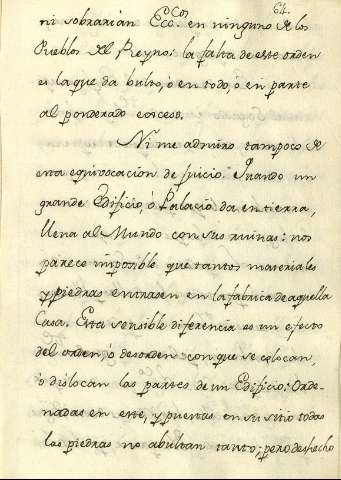 64.
ni sobrarían Ecc.cos en ninguno de los
Pueblos del Reyno: la falta de este orden
es la que da bulto, ó en todo, ó en parte
al ponderado exceso.
Ni me admiro tampoco de
esta equivocacion de juicio. Quando un
grande Edificio, ó Palacio da en tierra,
llena al Mundo con sus ruinas: nos
parece imposible que tantos materiales
y piedras entrasen en la fabrica de aquella
Casa. Esta sensible diferencia es un efecto
del orden, ó desorden con que se colocan,
ó dislocan las partes de un Edificio: Orde-
nadas en este, y puestas en su sitio todas
las piedras no abultan tanto; pero deshecho